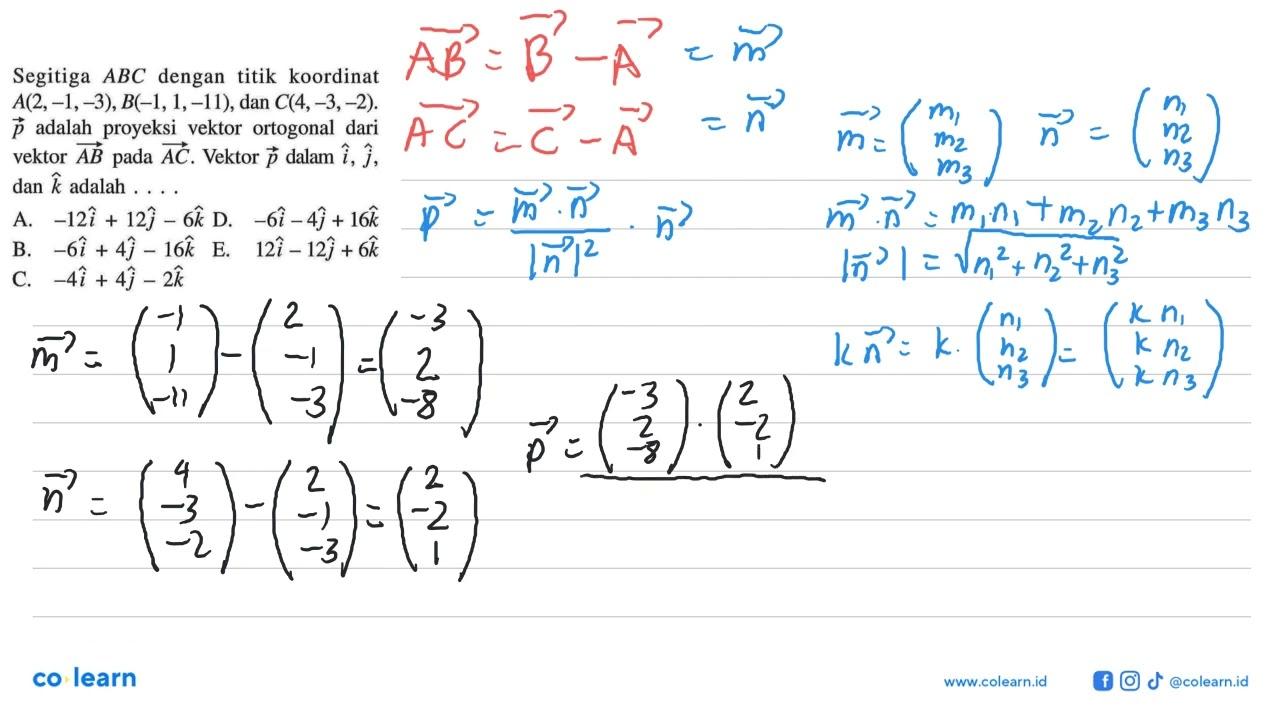 Segitiga ABC dengan titik koordinat
A(2, –1, –3), B(–1, 1, –11), dan C(4, –3, –2).
p⃗ adalah proyeksi vektor ortogonal dari
vektor AB⃗ pada AC⃗. Vektor p⃗ dalam î, ĵ,
dan k̂ adalah . . . .
A. –12î + 12ĵ – 6k̂ D. –6î – 4ĵ + 16k̂
B. –6î + 4ĵ – 16k̂ E. 12î – 12ĵ + 6k̂
C. –4î + 4ĵ – 2k̂
AB⃗ = B⃗ – A⃗ = m⃗
AC⃗ = C⃗ – A⃗ = n⃗
m⃗ = (m1 m2 m3) n⃗ = (n1 n2 n3)
p⃗ = m⃗ · n⃗ / |n⃗|² · n⃗
m⃗ · n⃗ = m1·n1 + m2 n2 + m3 n3
|n⃗| = √n1² + n2² + n3²
k n⃗ = k · (n1 n2 n3) = (k n1 k n2 k n3)
m⃗ = (-1 1 -11) – (2 -1 -3) = (-3 2 -8)
n⃗ = (4 -3 -2) – (2 -1 -3) = (2 -2 1)
p⃗ = (-3 2 -8) · (2 -2 1)
co learn
www.colearn.id
@colearn.id